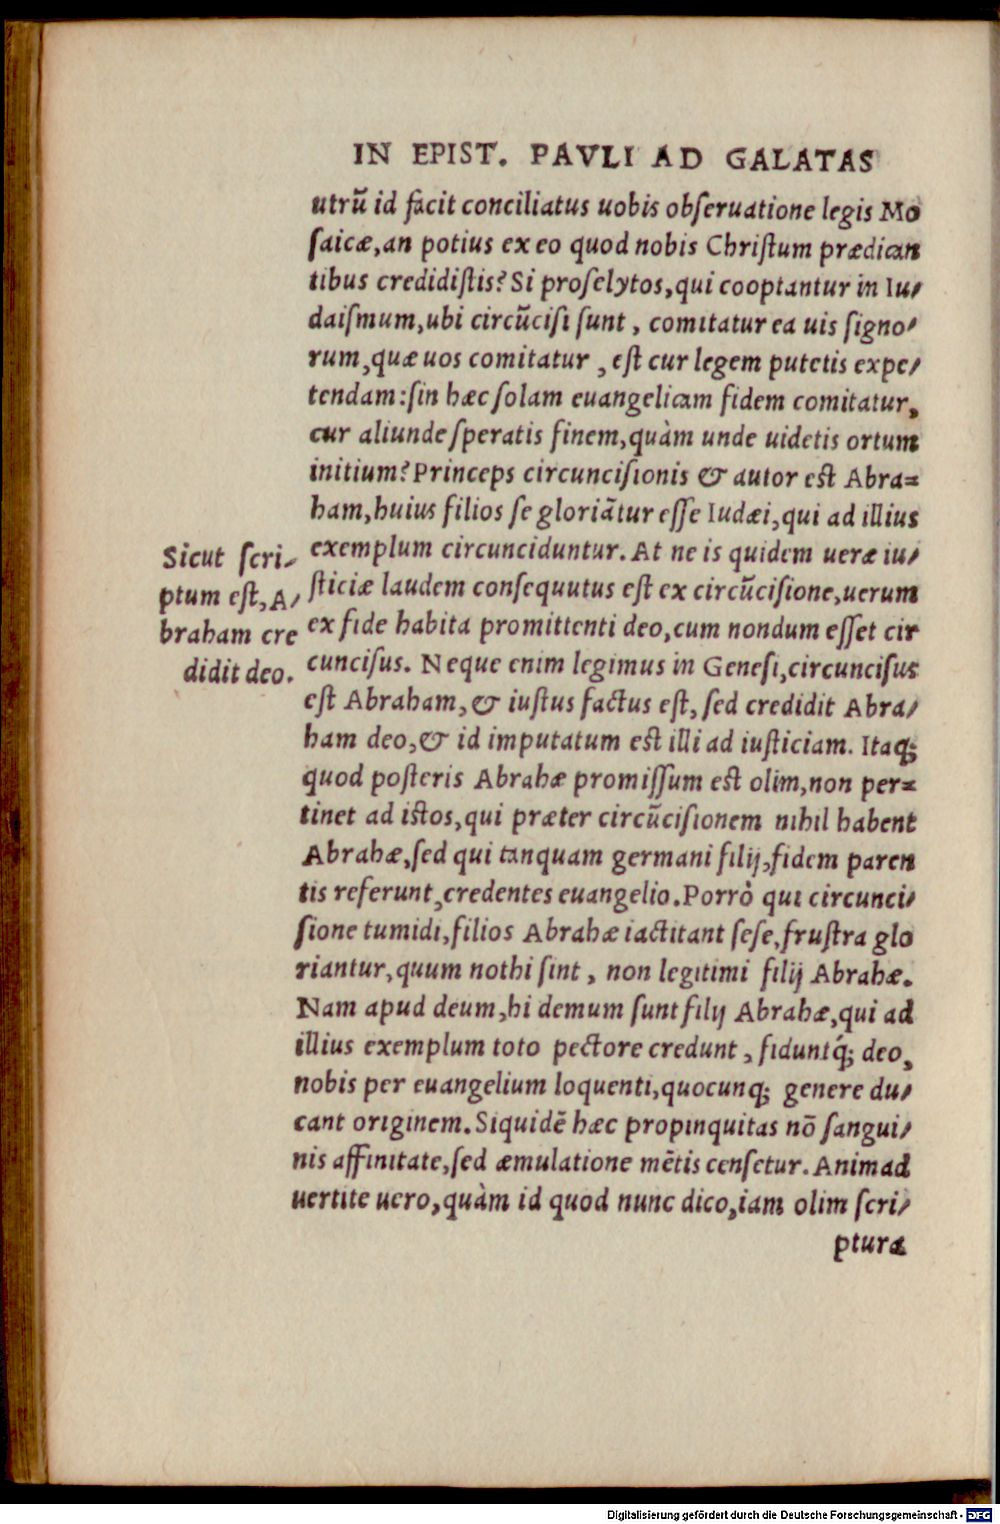 IN EPIST. PAVLI AD GALATAS
utrū id facit conciliatus uobis obſeruatione legis Mo
ſaicæ,an potius ex eo quod nobis Chriſtum prædican
tibus credidiſtis? Si proſelytos,qui cooptantur in Iu/
daiſmum,ubi circūciſi ſunt, comitatur ea uis ſigno/
rum,quæ uos comitatur, eſt cur legem putetis expe/
tendam:ſin hæc ſolam euangelicam fidem comitatur,
cur aliunde ſperatis finem,quàm unde uidetis ortum
initium? Princeps circunciſionis & autor eſt Abra=
ham,huius filios ſe gloriātur eſſe Iudæi,qui ad illius
exemplum circunciduntur. At ne is quidem ueræ iu/
ſticiæ laudem conſequutus eſt ex circūciſione,uerum
ex fide habita promittenti deo,cum nondum eſſet cir
cunciſus. Neque enim legimus in Geneſi,circunciſus
eſt Abraham,& iuſtus factus eſt, ſed credidit Abra/
ham deo,& id imputatum eſt illi ad iuſticiam. Itaq;
quod poſteris Abrahæ promiſſum eſt olim,non per=
tinet ad iſtos,qui præter circūciſionem nihil habent
Abrahæ,ſed qui tanquam germani filij,fidem paren
tis referunt,credentes euangelio. Porrò qui circunci/
ſione tumidi,filios Abrahæ iactitant ſeſe,fruſtra glo
riantur,quum nothi ſint, non legitimi filij Abrahæ.
Nam apud deum,hi demum ſunt filij Abrahæ,qui ad
illius exemplum toto pectore credunt, fiduntq́; deo,
nobis per euangelium loquenti,quocunq; genere du/
cant originem. Siquidē hæc propinquitas nō ſangui/
nis affinitate,ſed æmulatione mētis cenſetur. Animad
uertite uero,quàm id quod nunc dico,iam olim ſcri/
pturæ
Sicut ſcri/
ptum eſt,A/
braham cre
didit deo.
Digitalisierung gefördert durch die Deutsche Forschungsgemeinschaft - DFG